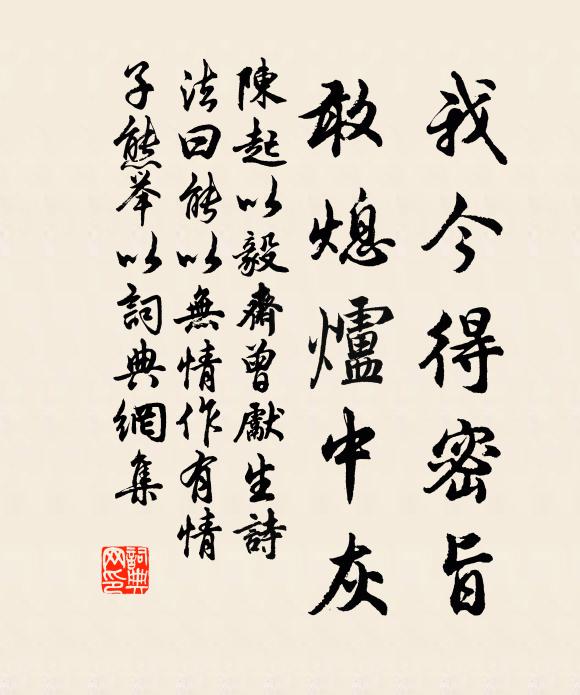 我今得密旨
敢熄爐中灰
陳起以毅齋曾獻生詩
法曰能以無情作有情
子熊举以詞典網集
詞典
网印